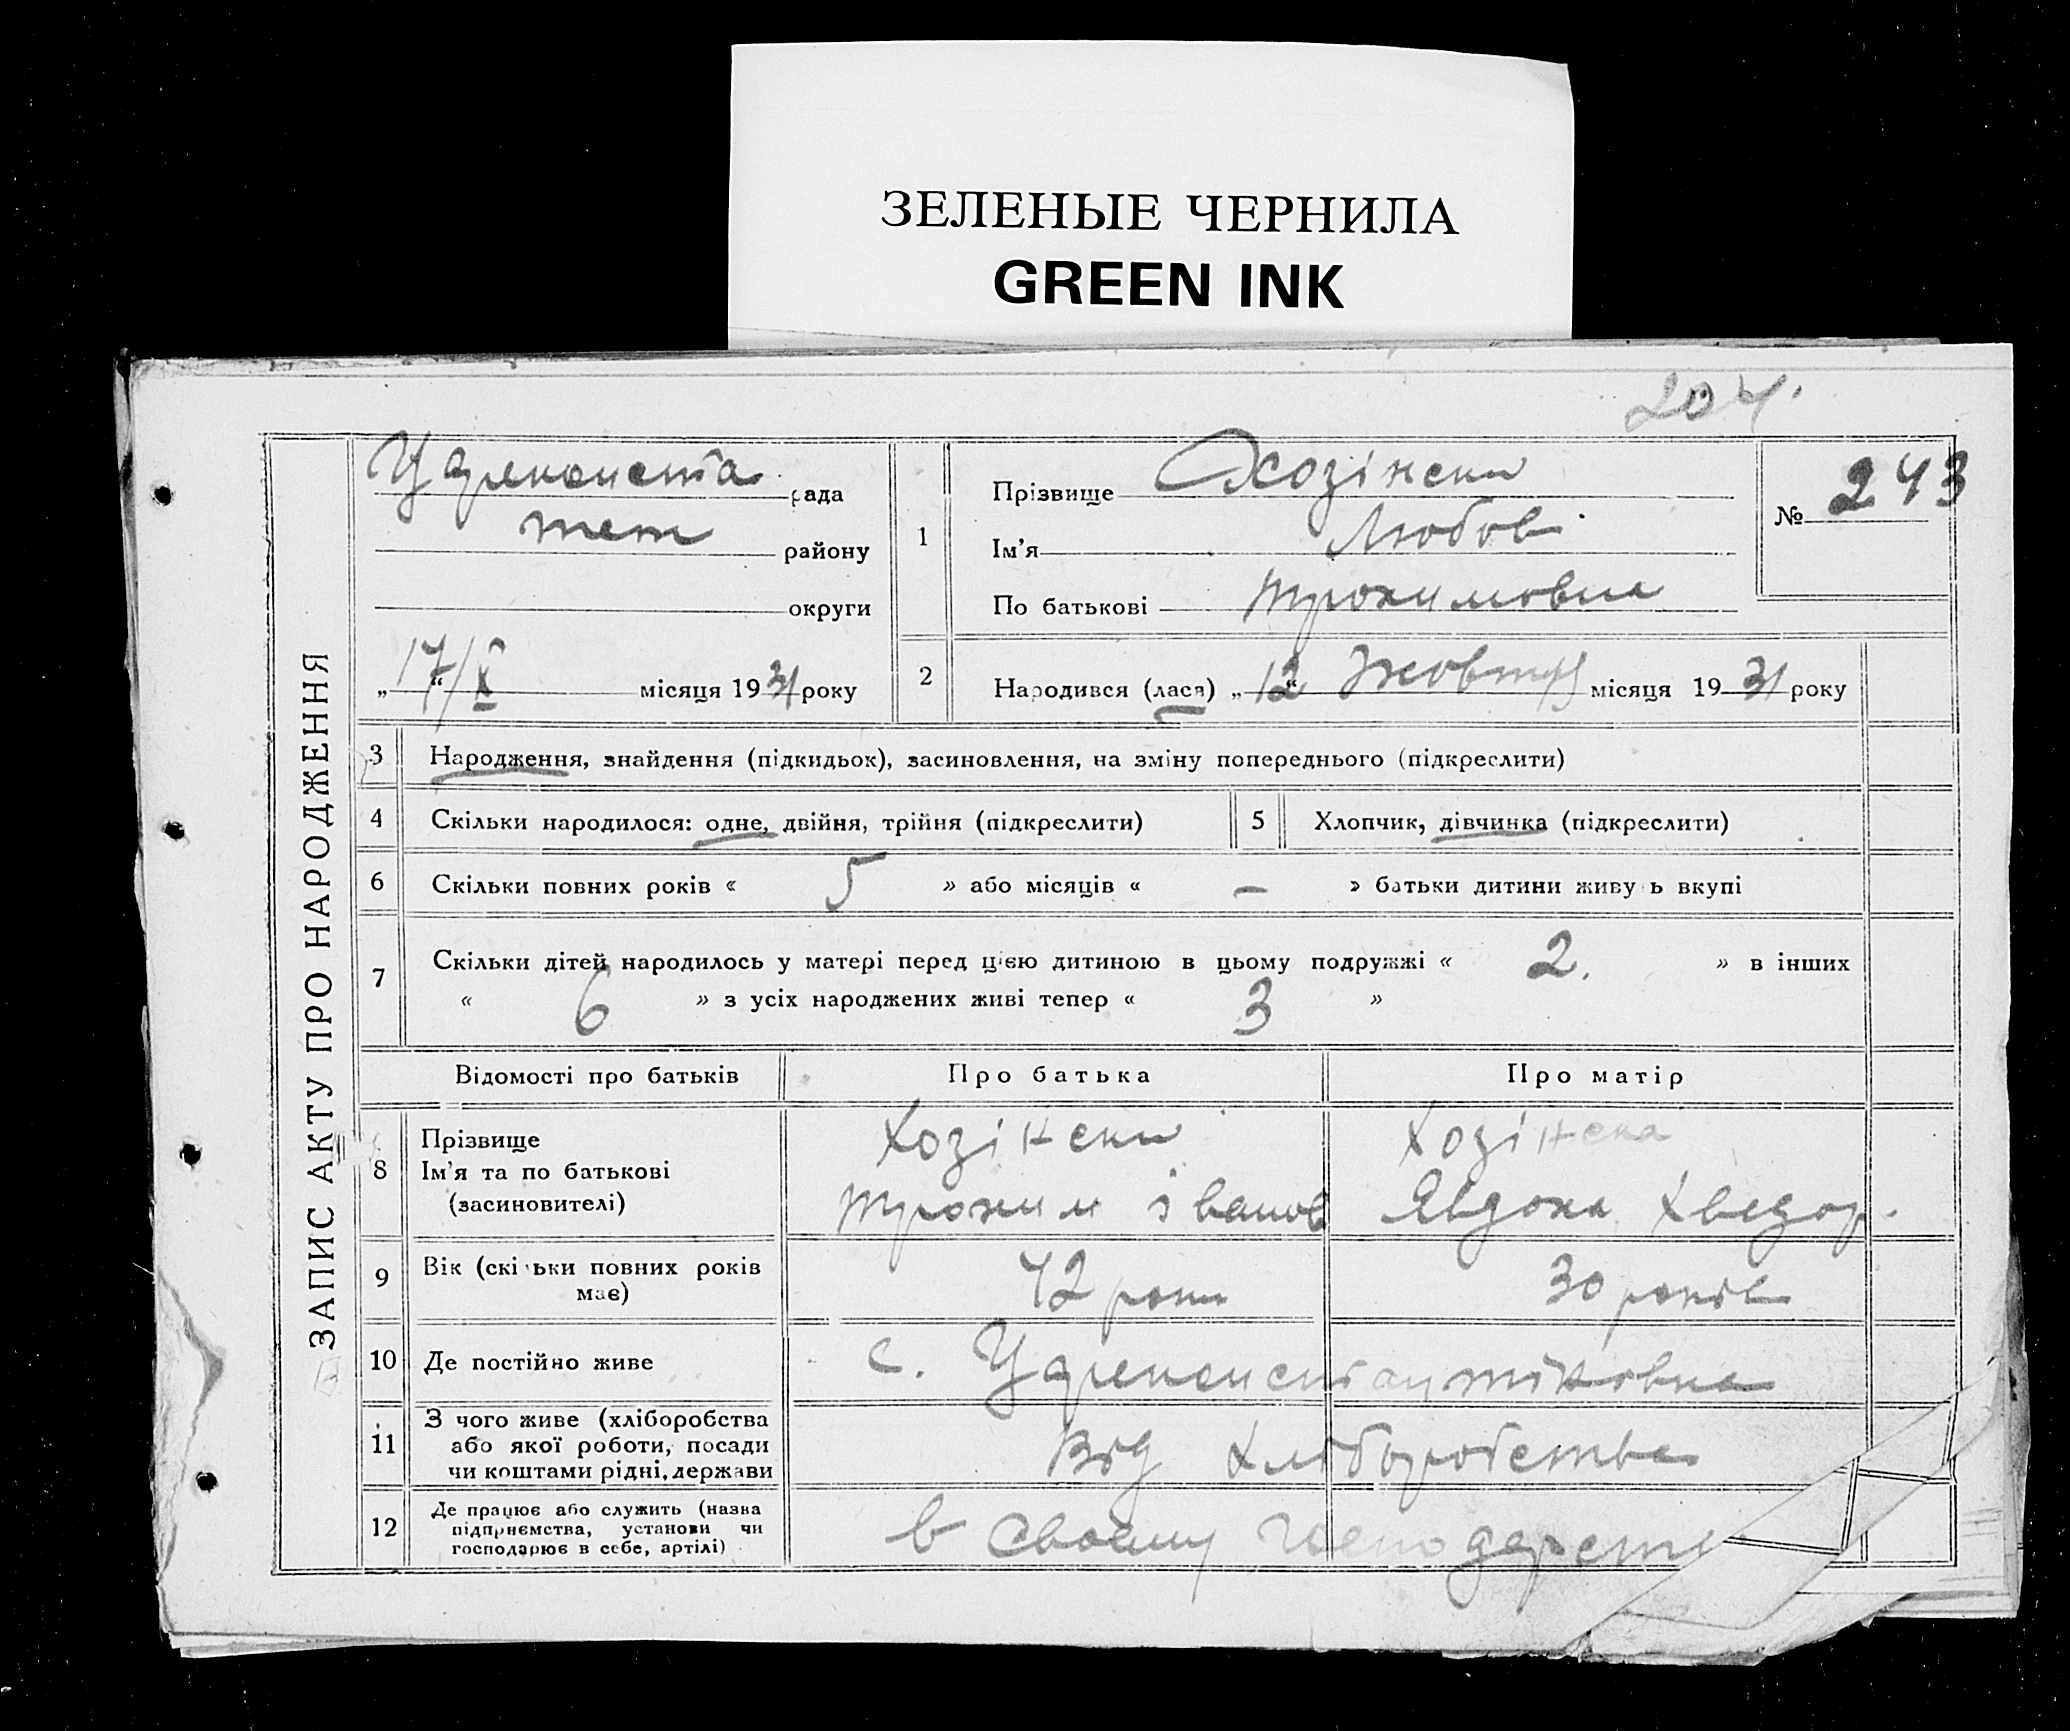 ЗЕЛЕНЫЕ ЧЕРНИЛА
GREEN INK
204.
ЗАПИС АКТУ ПРО НАРОДЖЕННЯ
рада
району
округи
„17“/X місяця 1931 року
1
Прізвище Хозінски
Ім'я Любов
По батькові Трохимовна
№ 243
2
Народився (лася) „12“ Жовтня місяця 1931 року
3 Народження, знайдення (підкидьок), засиновлення, на зміну попереднього (підкреслити)
4 Скільки народилося: одне, двійня, трійня (підкреслити)
5 Хлопчик, дівчинка (підкреслити)
6 Скільки повних років « 5 » або місяців « — » батьки дитини живу ь вкупі
7 Скільки дітей народилось у матері перед цією дитиною в цьому подружжі « 2. » в інших
« 6 » з усіх народжених живі тепер « 3 »
Відомості про батьків Про батька Про матір
8 Прізвище
Ім'я та по батькові
(засиновителі)
Хозінски
Трохим Іванов
Хозінска
Явдоха Хведор.
9 Вік (скільки повних років
має)
42 роки
30 років
10 Де постійно живе
с.
11 З чого живе (хліборобства
або якої роботи, посади
чи коштами рідні, держави
Від хліборобства
12 Де працює або служить (назва
підприємства, установи чи
господарює в себе, артілі)
в своему